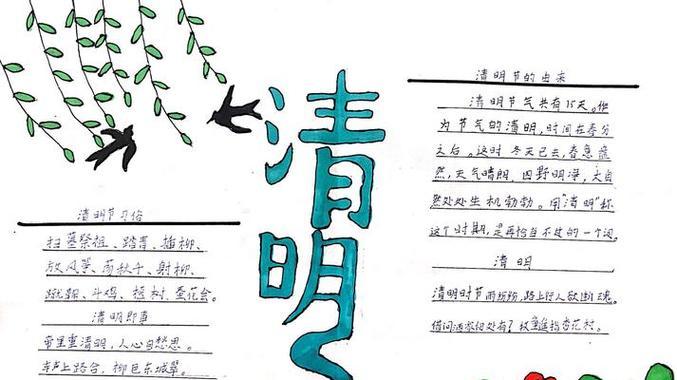 清明
清明节的由来
清明节气共有15天。作
为节气的清明,时间在春分
之后。这时冬天已去,春意盎
然,天气晴朗,四野明净,大自
然处处生机勃勃。用"清明"称
这个时期,是再恰当不过的一个词。
清明
清明时节雨纷纷,路上行人欲断魂。
借问酒家何处有?牧童遥指杏花村。
清明节习俗
扫墓祭祖、踏青、插柳、
放风筝、荡秋千、射柳、
蹴鞠、斗鸡、植树、蚕花会。
清明即事
帝里重清明,人心自愁思。
车声上路合,柳色东城翠。